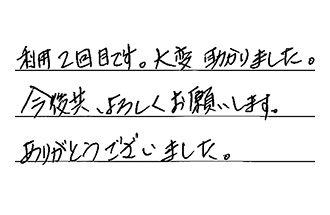 利用2回目です。大変助かりました。
今後共、よろしくお願いします。
ありがとうございました。